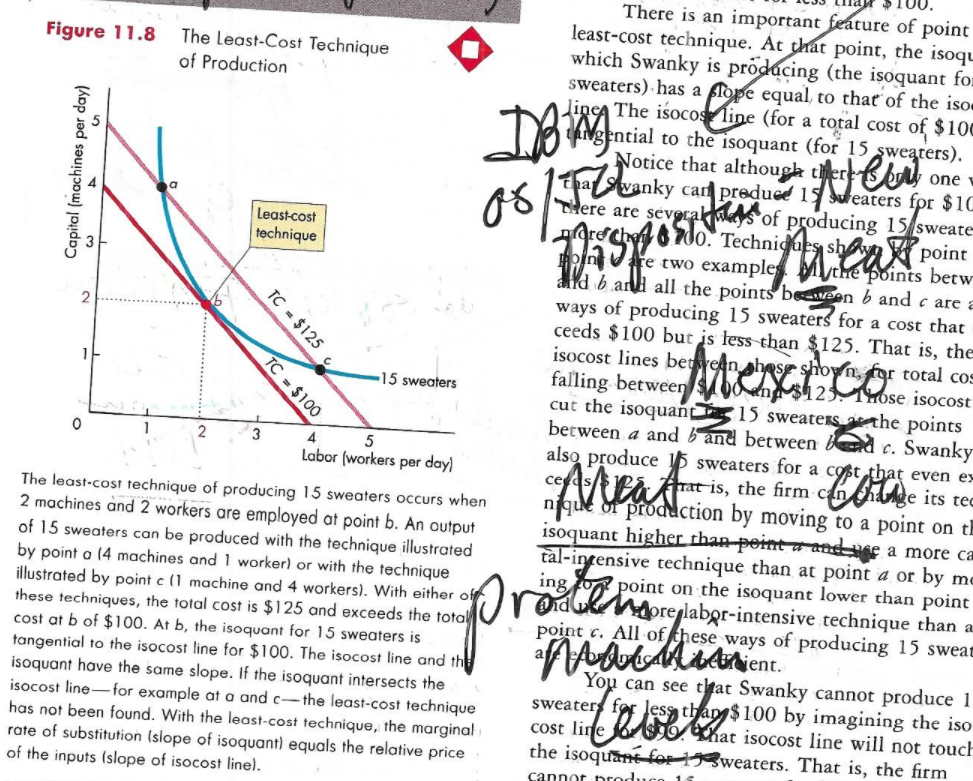 Figure 11.8
The Least-Cost Technique
of Production
Capital (machines per day)
5
4
3
2
1
0
1
2
3
4
5
a
b
c
Least-cost
technique
TC = $125
TC = $100
15 sweaters
Labor (workers per day)
The least-cost technique of producing 15 sweaters occurs when
2 machines and 2 workers are employed at point b. An output
of 15 sweaters can be produced with the technique illustrated
by point a (4 machines and 1 worker) or with the technique
illustrated by point c (1 machine and 4 workers). With either of
these techniques, the total cost is $125 and exceeds the total
cost at b of $100. At b, the isoquant for 15 sweaters is
tangential to the isocost line for $100. The isocost line and the
isoquant have the same slope. If the isoquant intersects the
isocost line—for example at a and c—the least-cost technique
has not been found. With the least-cost technique, the marginal
rate of substitution (slope of isoquant) equals the relative price
of the inputs (slope of isocost line).
than $100.
There is an important feature of point
least-cost technique. At that point, the
which Swanky is producing (the isoquant
sweaters) has a slope equal to that of the
line. The isocost line (for a total cost of
tangential to the isoquant (for 15 sweaters).
Notice that although there is only one
that Swanky can produce 15 sweaters for
there are several ways of producing 15
more than $100. Techniques point
are two examples. All the points
and b and all the points between b and c are
ways of producing 15 sweaters for a cost that
ceeds $100 but is less than $125. That is, the
isocost lines between those shown, for total
falling between $100 and $125. Those isocost
cut the isoquant for 15 sweaters at the points
between a and b and between b and c. Swanky
also produce 15 sweaters for a cost that even
ceeds $125. That is, the firm can change its
nique of production by moving to a point on
isoquant higher than point a and use a more
tal-intensive technique than at point a or by
ing to a point on the isoquant lower than point
and use a more labor-intensive technique than
point c. All of these ways of producing 15
are economically inefficient.
You can see that Swanky cannot produce
sweaters for less than $100 by imagining the
cost line for $99. That isocost line will not touch
the isoquant for 15 sweaters. That is, the firm
cannot produce 15
New
Meat
Mexico
Meat
Cow
protein
Levels